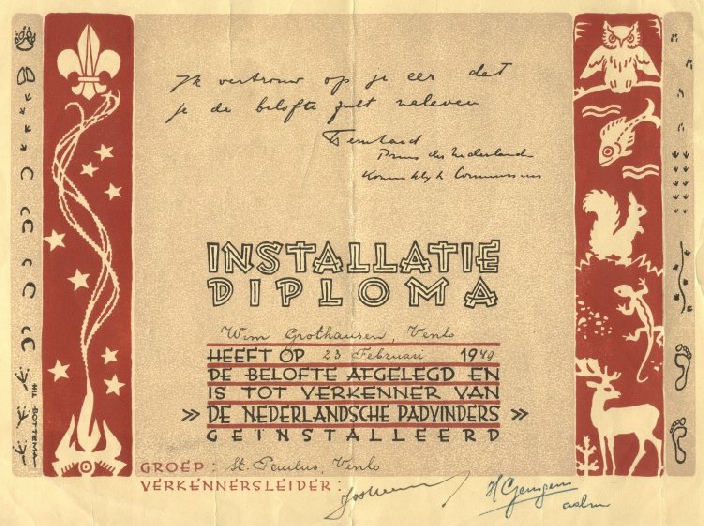 Ik vertrouw op je eer dat
je de belofte zult naleven
Bernhard
Prins der Nederlanden
Koninklijk Commissaris
INSTALLATIE
DIPLOMA
Wim Grothausen, Venlo
HEEFT OP 23 Februari 1940
DE BELOFTE AFGELEGD EN
IS TOT VERKENNER VAN
» DE NEDERLANDSCHE PADVINDERS »
GEINSTALLEERD
GROEP: St. Paulus, Venlo
VERKENNERSLEIDER:
WIL BOTTEMA